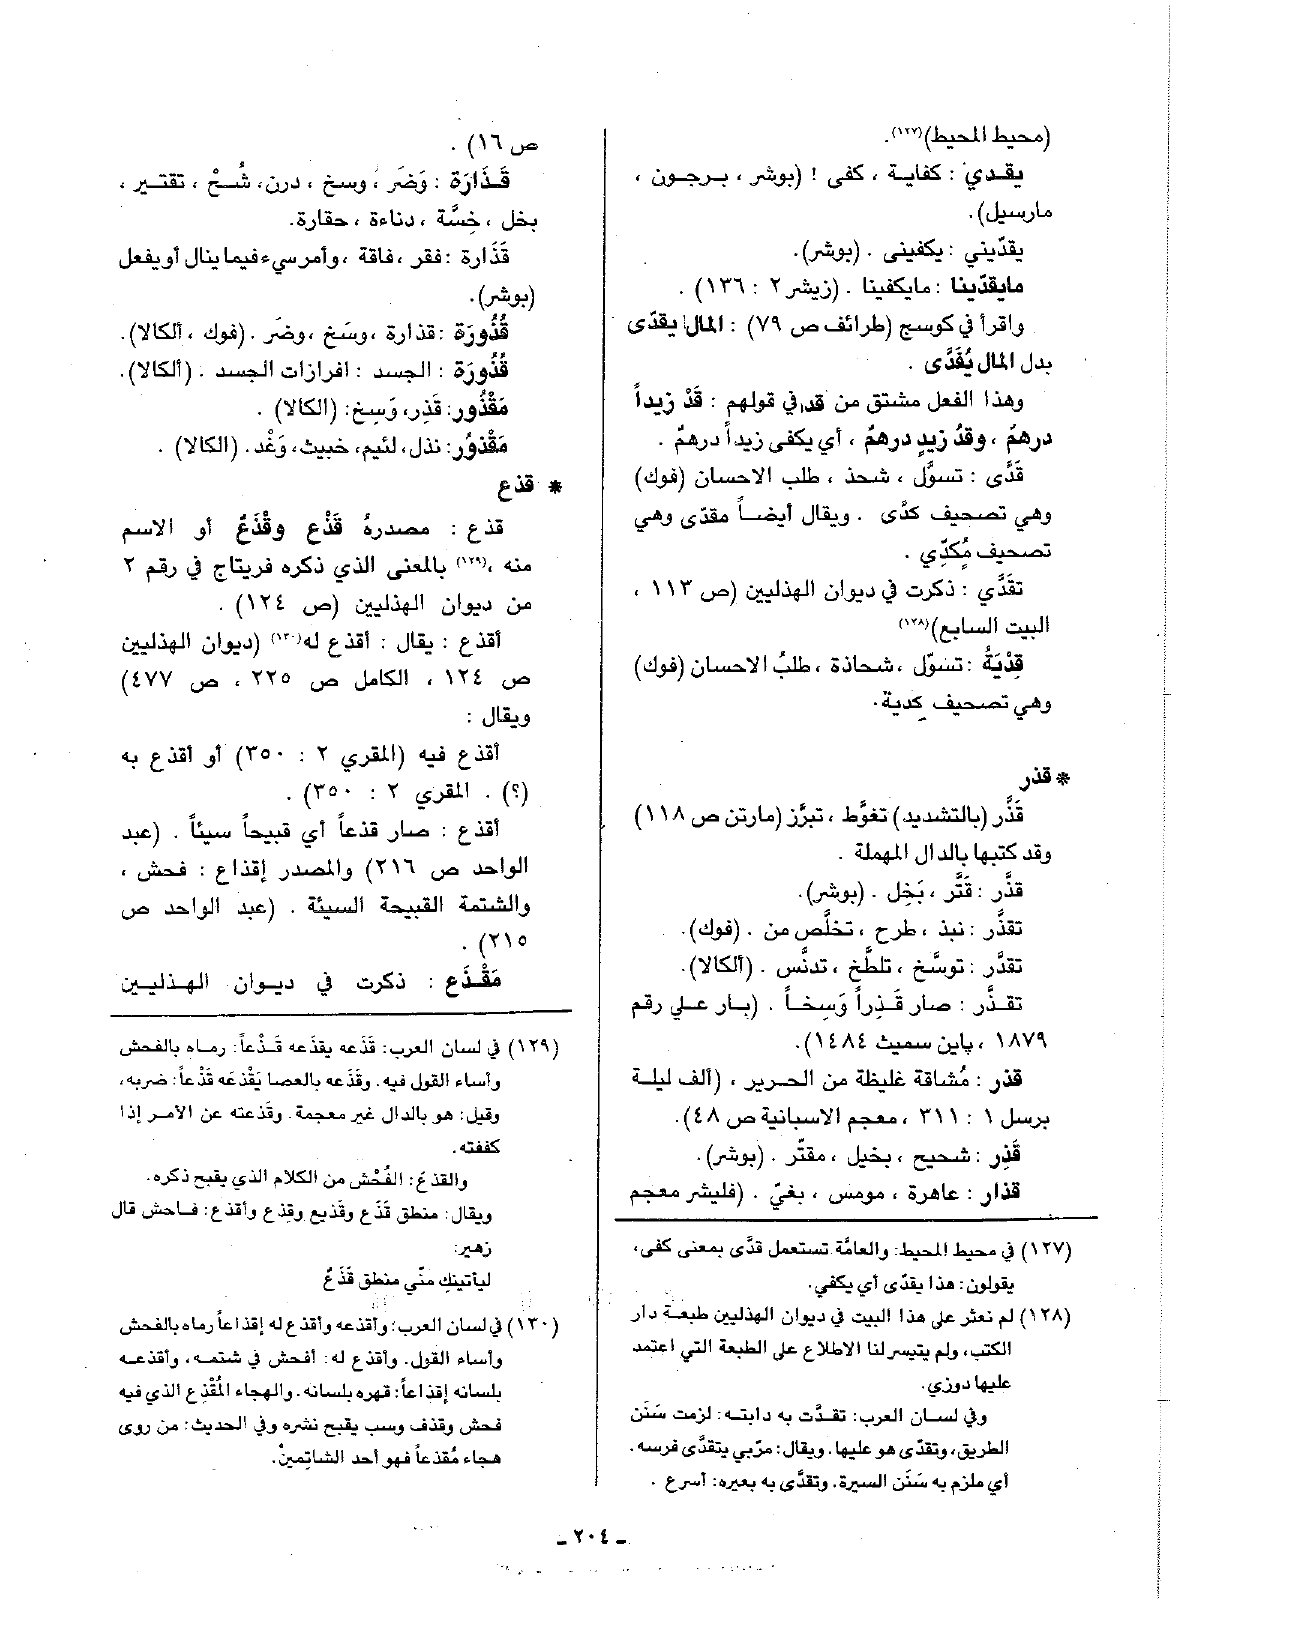 (محيط المحيط)(١٢٧).
يقدي : كفاية ، كفى ! (بوشر ، برجون ،
مارسيل).
يقدّيني : يكفيني . (بوشر).
مايقدّينا : مايكفينا . (زيشر ٢ : ١٣٦) .
واقرأ في كوسج (طرائف ص ٧٩) : المال يقدّى
بدل المال يُفَدَّى .
وهذا الفعل مشتق من قد في قولهم : قَدْ زيداً
درهمٌ ، وقدُ زيدٍ درهمٌ ، أي يكفى زيداً درهمٌ .
قَدَّى : تسوَّل ، شحذ ، طلب الاحسان (فوك)
وهي تصحيف كدَّى . ويقال أيضاً مقدّى وهي
تصحيف مُكدِّي .
تقَدَّي : ذكرت في ديوان الهذليين (ص ١١٣ ،
البيت السابع)(١٢٨)
قِدْيَةُ : تسوّل ، شحاذة ، طلبُ الاحسان (فوك)
وهي تصحيف كدية.
* قذر
قَذَّر (بالتشديد) تغوَّط ، تبرَّز (مارتن ص ١١٨)
وقد كتبها بالدال المهملة .
قذَّر : قَتَّر ، بَخِل . (بوشر).
تقذَّر : نبذ ، طرح ، تخلَّص من . (فوك).
تقذَّر : توسَّخ ، تلطَّخ ، تدنَّس . (ألكالا).
تقذَّر : صار قَذِراً وَسِخاً . (بار علي رقم
١٨٧٩ ، پاين سميث ١٤٨٤).
قذر : مُشاقة غليظة من الحرير ، (ألف ليلة
برسل ١ : ٣١١ ، معجم الاسبانية ص ٤٨).
قَذِر : شحيح ، بخيل ، مقتّر . (بوشر).
قذار : عاهرة ، مومس ، بغيّ . (فليشر معجم
(١٢٧) في محيط المحيط: والعامَّة تستعمل قدَّى بمعنى كفى،
يقولون: هذا يقدّى أي يكفي.
(١٢٨) لم نعثر على هذا البيت في ديوان الهذليين طبعة دار
الكتب، ولم يتيسر لنا الاطلاع على الطبعة التي اعتمد
عليها دوزي.
وفي لسان العرب: تقدَّت به دابته: لزمت سَنَن
الطريق، وتقدّى هو عليها. ويقال: مرّبي يتقدَّى فرسه.
أي ملزم به سَنَن السيرة. وتقدَّى به بعيره: أسرع .
ص ١٦) .
قَذَارَة : وَضَر ، وسخ ، درن، شُحّ ، تقتير ،
بخل ، خِسَّة ، دناءة ، حقارة.
قَذَارة : فقر ، فاقة ، وأمر سيء فيما ينال أو يفعل
(بوشر).
قُذُورَة : قذارة ، وسَخ ، وضَر . (فوك ، ألكالا).
قُذُورَة : الجسد : افرازات الجسد . (ألكالا).
مَقْذُور: قَذِر، وَسِخ: (الكالا) .
مَقْذوُر: نذل، لئيم، خبيث، وَغْد. (الكالا) .
* قذع
قذع : مصدرهُ قَذْع وقْذَعٌ أو الاسم
منه ،(١٢٩) بالمعنى الذي ذكره فريتاج في رقم ٢
من ديوان الهذليين (ص ١٢٤) .
أقذع : يقال : أقذع له(١٣٠) (ديوان الهذليين
ص ١٢٤ ، الكامل ص ٢٢٥ ، ص ٤٧٧)
ويقال :
أقذع فيه (المقري ٢ : ٣٥٠) أو أقذع به
(؟) . المقري ٢ : ٣٥٠) .
أقذع : صار قذعاً أي قبيحاً سيئاً . (عبد
الواحد ص ٢١٦) والمصدر إقذاع : فحش ،
والشتمة القبيحة السيئة . (عبد الواحد ص
٢١٥) .
مَقْذَع : ذكرت في ديوان الهذليين
(١٢٩) في لسان العرب: قَذَعه يقذعه قَذْعاً: رماه بالفحش
وأساء القول فيه. وقَذَعه بالعصا يَقْذَعَه قَذْعاً: ضربه،
وقيل: هو بالدال غير معجمة. وقَذعته عن الأمر إذا
كففته.
والقذعَ: الفُحْش من الكلام الذي يقبح ذكره.
ويقال: منطق قَذَع وقَذيع وقَذِع وأقذع: فاحش قال
زهير:
ليأتينك منّي منطق قَذَعٌ
(١٣٠) في لسان العرب: وأقذعه وأقذع له إقذاعاً رماه بالفحش
وأساء القول. وأقذع له: أفحش في شتمه، وأقذعه
بلسانه إقذاعاً: قهره بلسانه. والهجاء المُقْذِع الذي فيه
فحش وقذف وسب يقبح نشره وفي الحديث: من روى
هجاء مُقذعاً فهو أحد الشاتمينْ.
ـ ٢٠٤ ـ